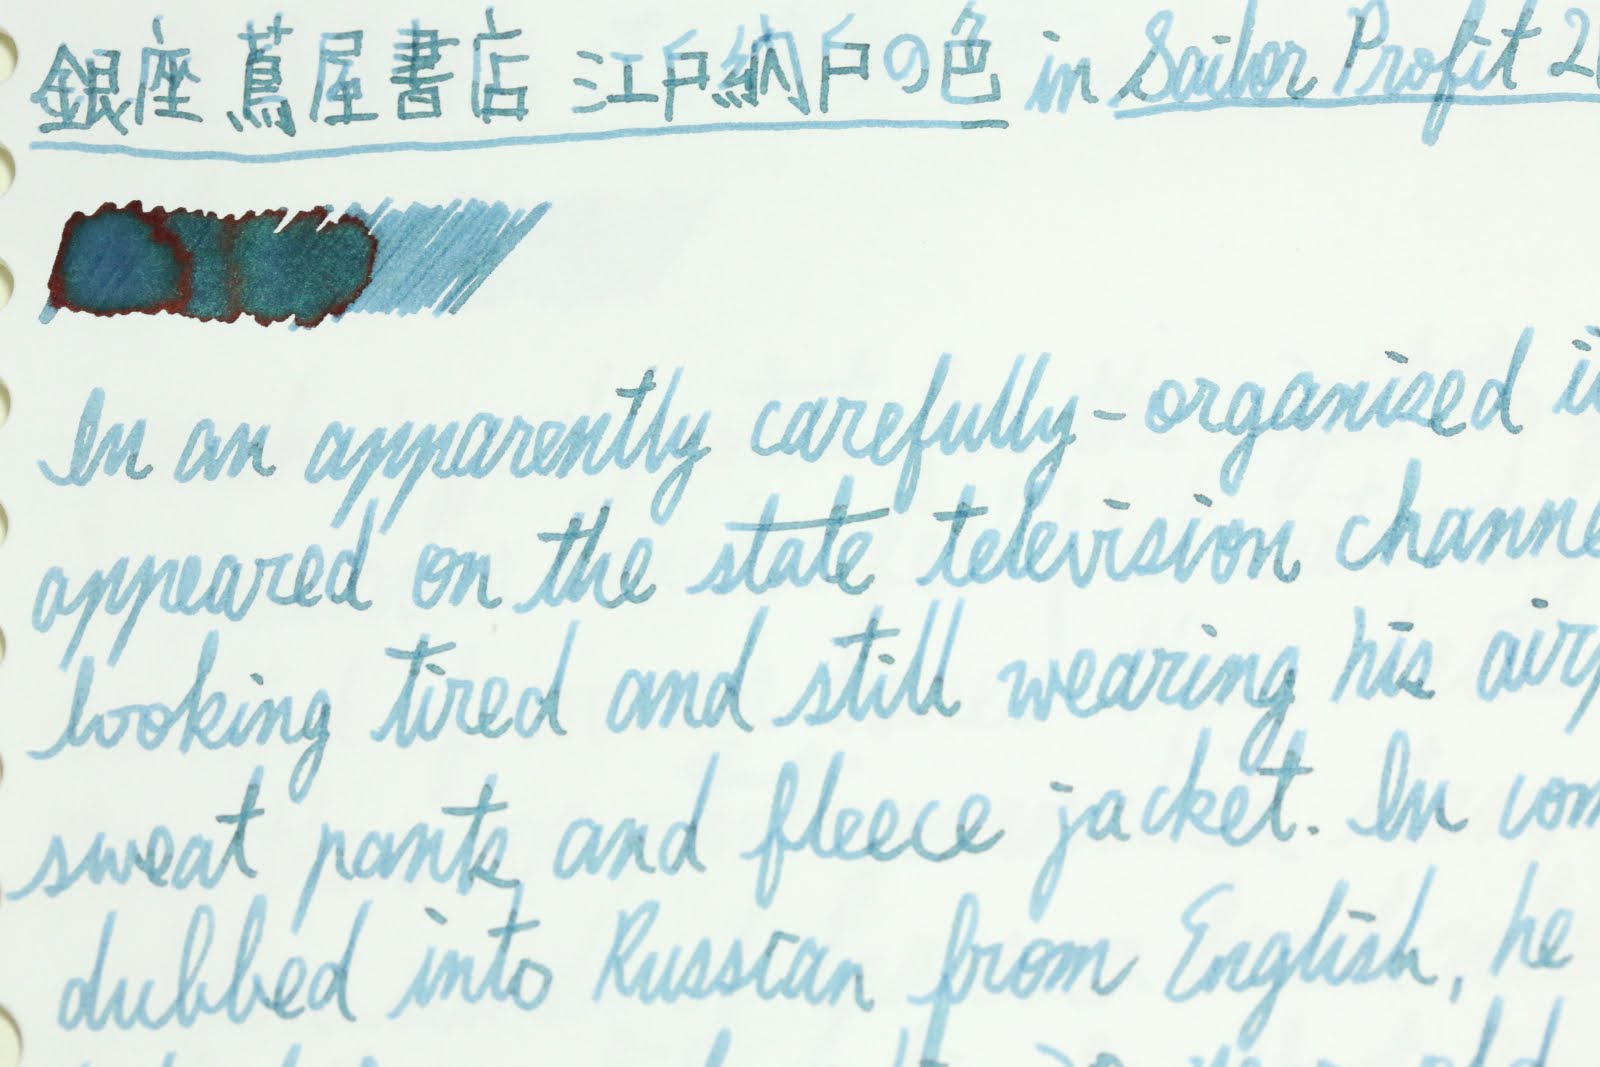 銀座 蔦屋書店 江戸納戸の色 in Sailor Profit 2
In an apparently carefully-organized
appeared on the state television
looking tired and still wearing his
sweat pants and fleece jacket. In
dubbed into Russian from English, he